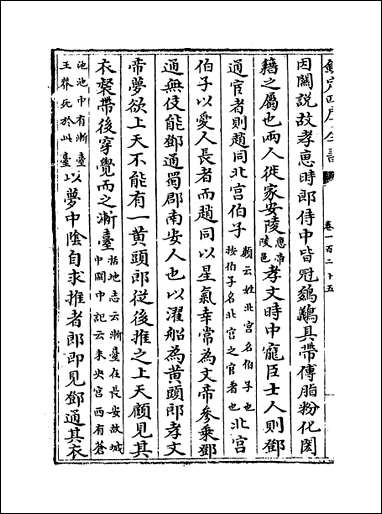 欽定四庫全書
卷一百二十五
因關說故孝惠時郎侍中皆冠鵔鸃具帶傅脂粉化閎
籍之屬也兩人徙家安陵惠帝陵邑孝文時中寵臣士人則鄧
通宦者則趙同北宮伯子顔云姓北宮名伯子也按伯子名北宮之宦者也北宮
伯子以愛人長者而趙同以星氣幸常為文帝參乗鄧
通無伎能鄧通蜀郡南安人也以濯船為黄頭郎孝文
帝夢欲上天不能有一黄頭郎從後推之上天顧見其
衣裻帶後穿覺而之漸臺括地志云漸臺在長安故城中關中記云未央宮西有蒼
池池中有漸臺王莽死於此臺以夢中陰自求推者郎即見鄧通其衣